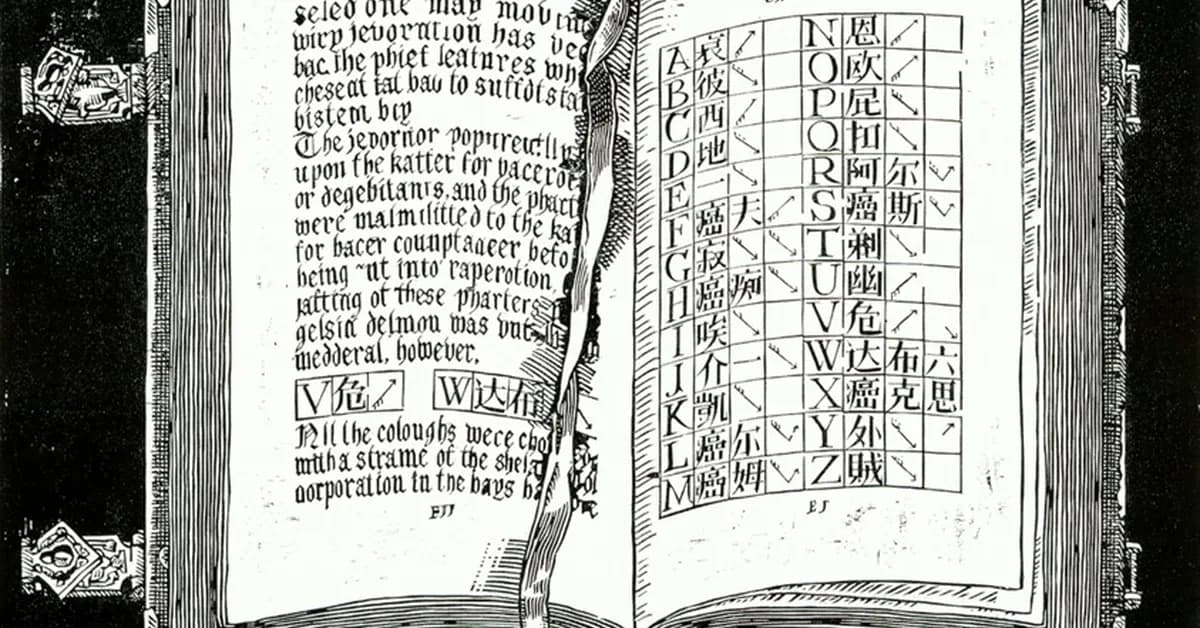 seled one may movin
wiry jevoration has ve
bac. the phief leatures wh
cheseat tal bau to suffotsta
bistem biy
The jevornor popurectlly
upon the katter for
or degebitants, and the phact
were malmilitted to the ka
for bacer counptaaeer befo
being ut into raperotion,
jatting of these pharters
gelsia delmou was vut
medderal, however,
V危 W达布
All the coloughs wece cho
with a strame of the shel
corporation in the bays b
A哀
B彼
C西
D地
E一
F癌夫
G寂
H癌痴
I唉
J介一
K凯
L癌尔
M癌姆
N恩
O欧
P屁
Q扣
R阿尔
S癌斯
T剃
U幽
V危
W达布六
X癌克思
Y外
Z贼